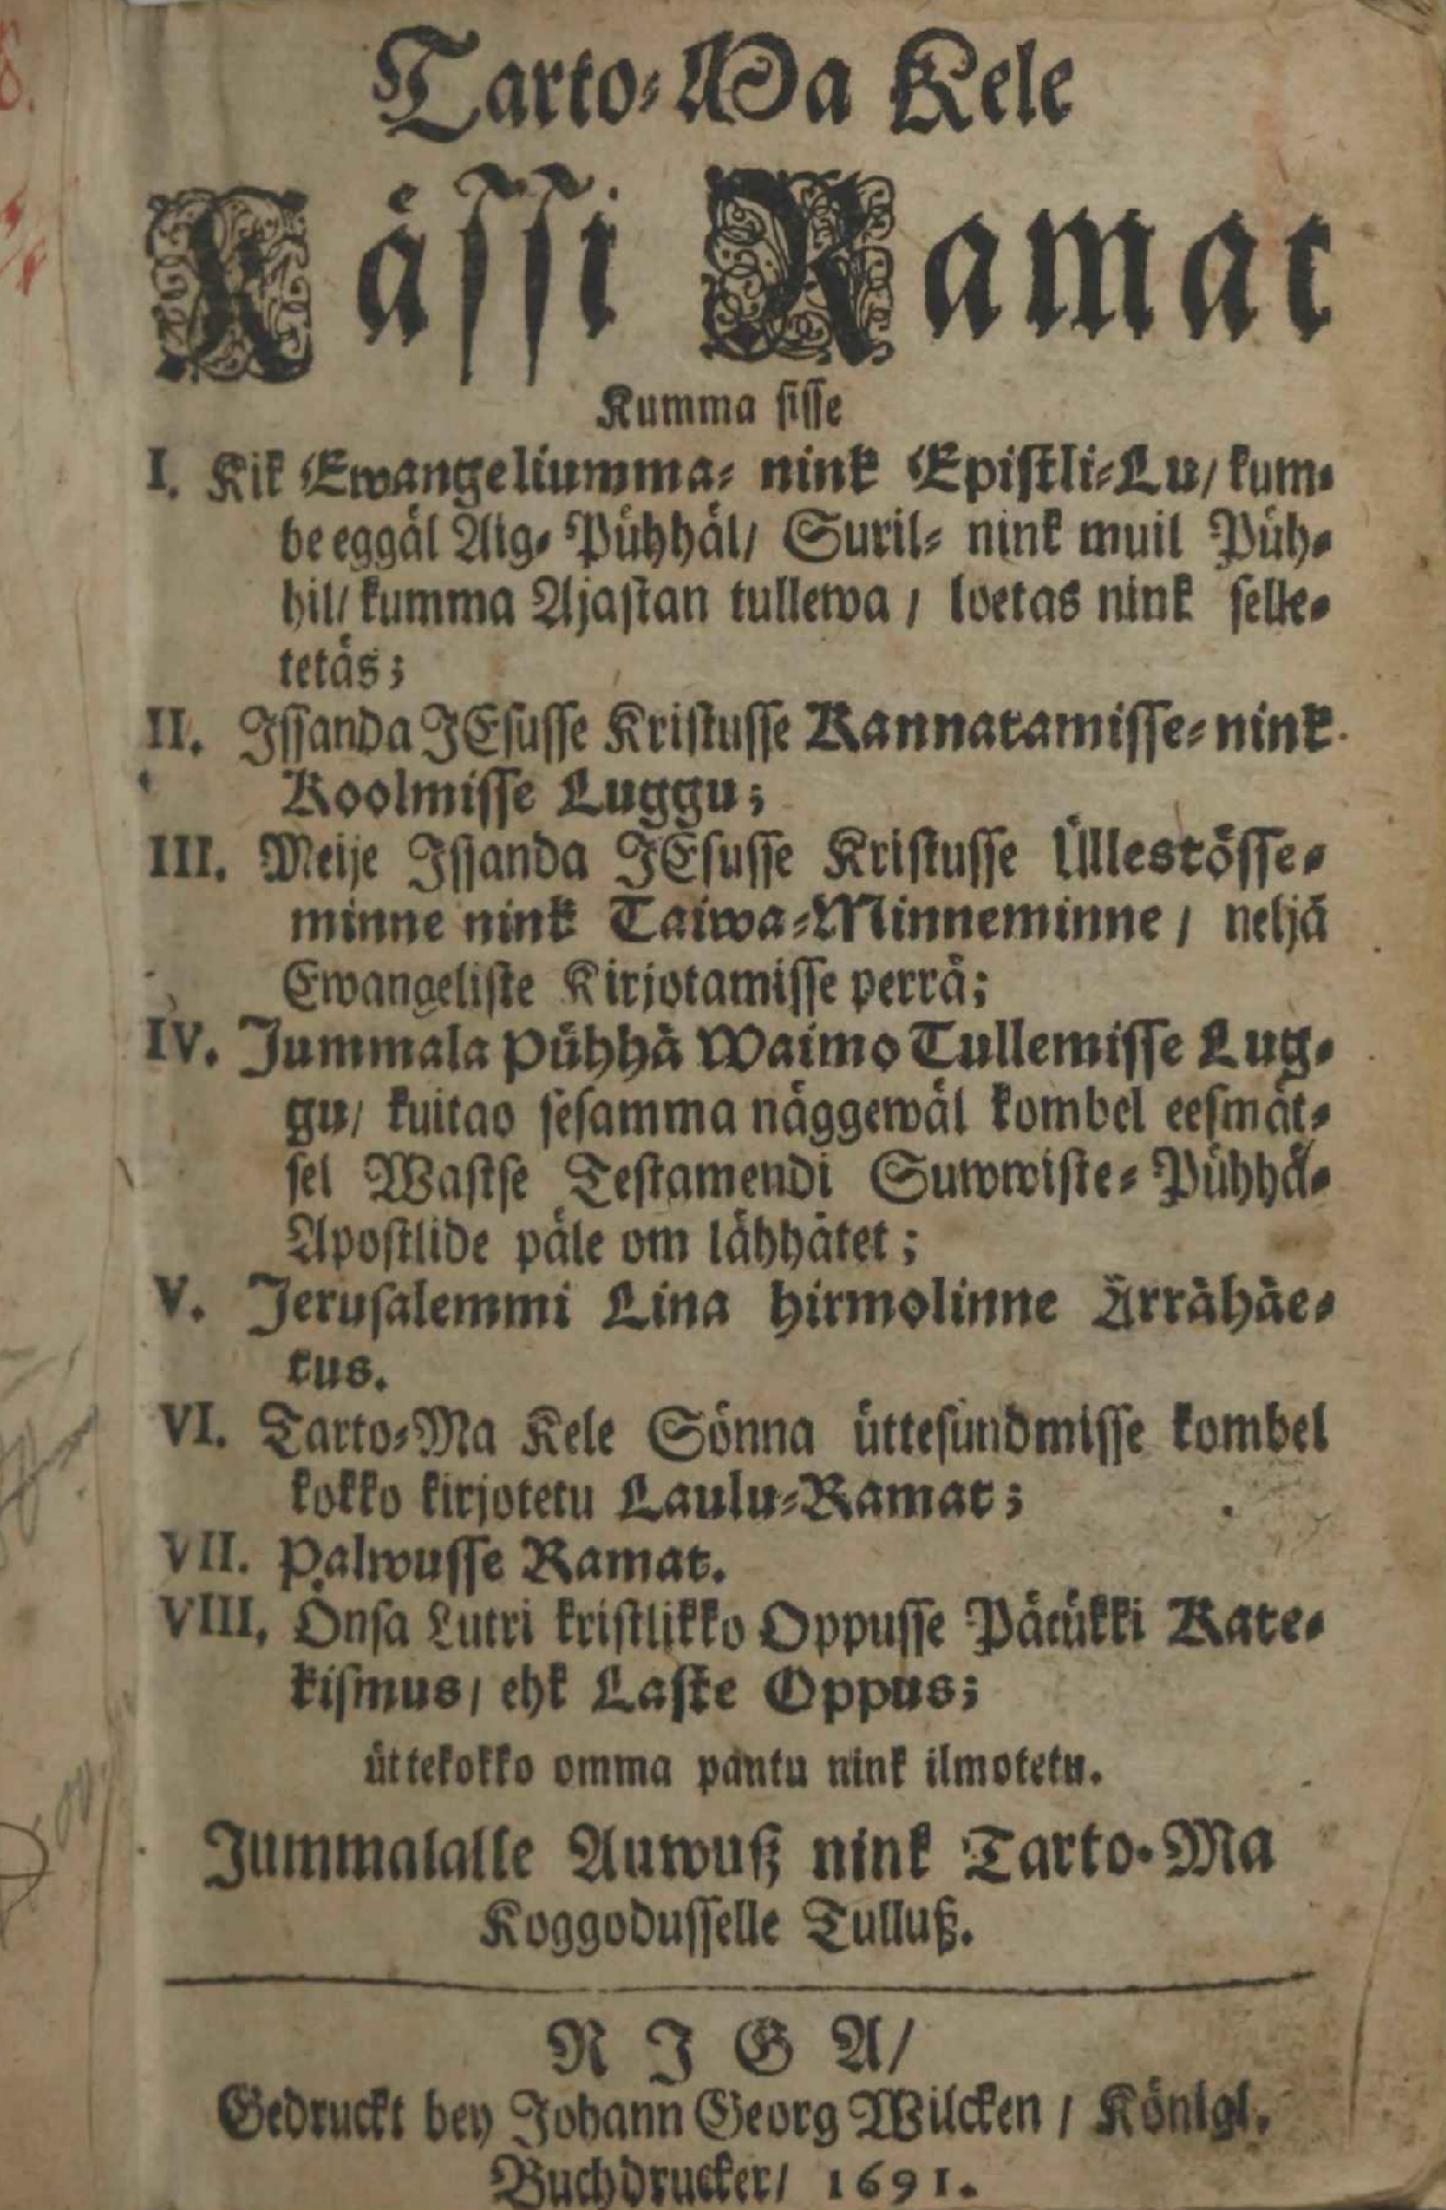 Tarto-Ma Kele
Kässi Ramat
Kumma sisse
I. Kik Ewangeliumma- nink Epistli-Lu/ kum-
be eggäl Aig- Pühhäl/ Suril- nink muil Püh-
hil/ kumma Ajastan tullewa / loetas nink selle-
tetäs;
II. Issanda JEsusse Kristusse Kannatamisse- nink
Koolmisse Luggu;
III. Meije Issanda JEsusse Kristusse Üllestösse-
minne nink Taiwa-Minneminne / neljä
Ewangeliste Kirjotamisse perrä;
IV. Jummala Pühhä Waimo Tullemisse Lug-
gu/ kuitao sesamma näggewäl kombel eesmät-
sel Wastse Testamendi Suwwiste- Pühhä-
Apostlide päle om lähhätet;
V. Jerusalemmi Lina hirmolinne Ärrähäe-
tus.
VI. Tarto-Ma Kele Sönna üttesündmisse kombel
kokko kirjotetu Laulu-Ramat;
VII. Palwusse Ramat.
VIII. Önsa Lutri kristlikko Oppusse Pätükki Kate-
kismus/ ehk Laste Oppus;
üttekokko omma pantu nink ilmotetu.
Jummalalle Auwuß nink Tarto-Ma
Koggodusselle Tulluß.
RIGA/
Gedruckt bey Johann Georg Wilcken / Königl.
Buchdrucker/ 1691.